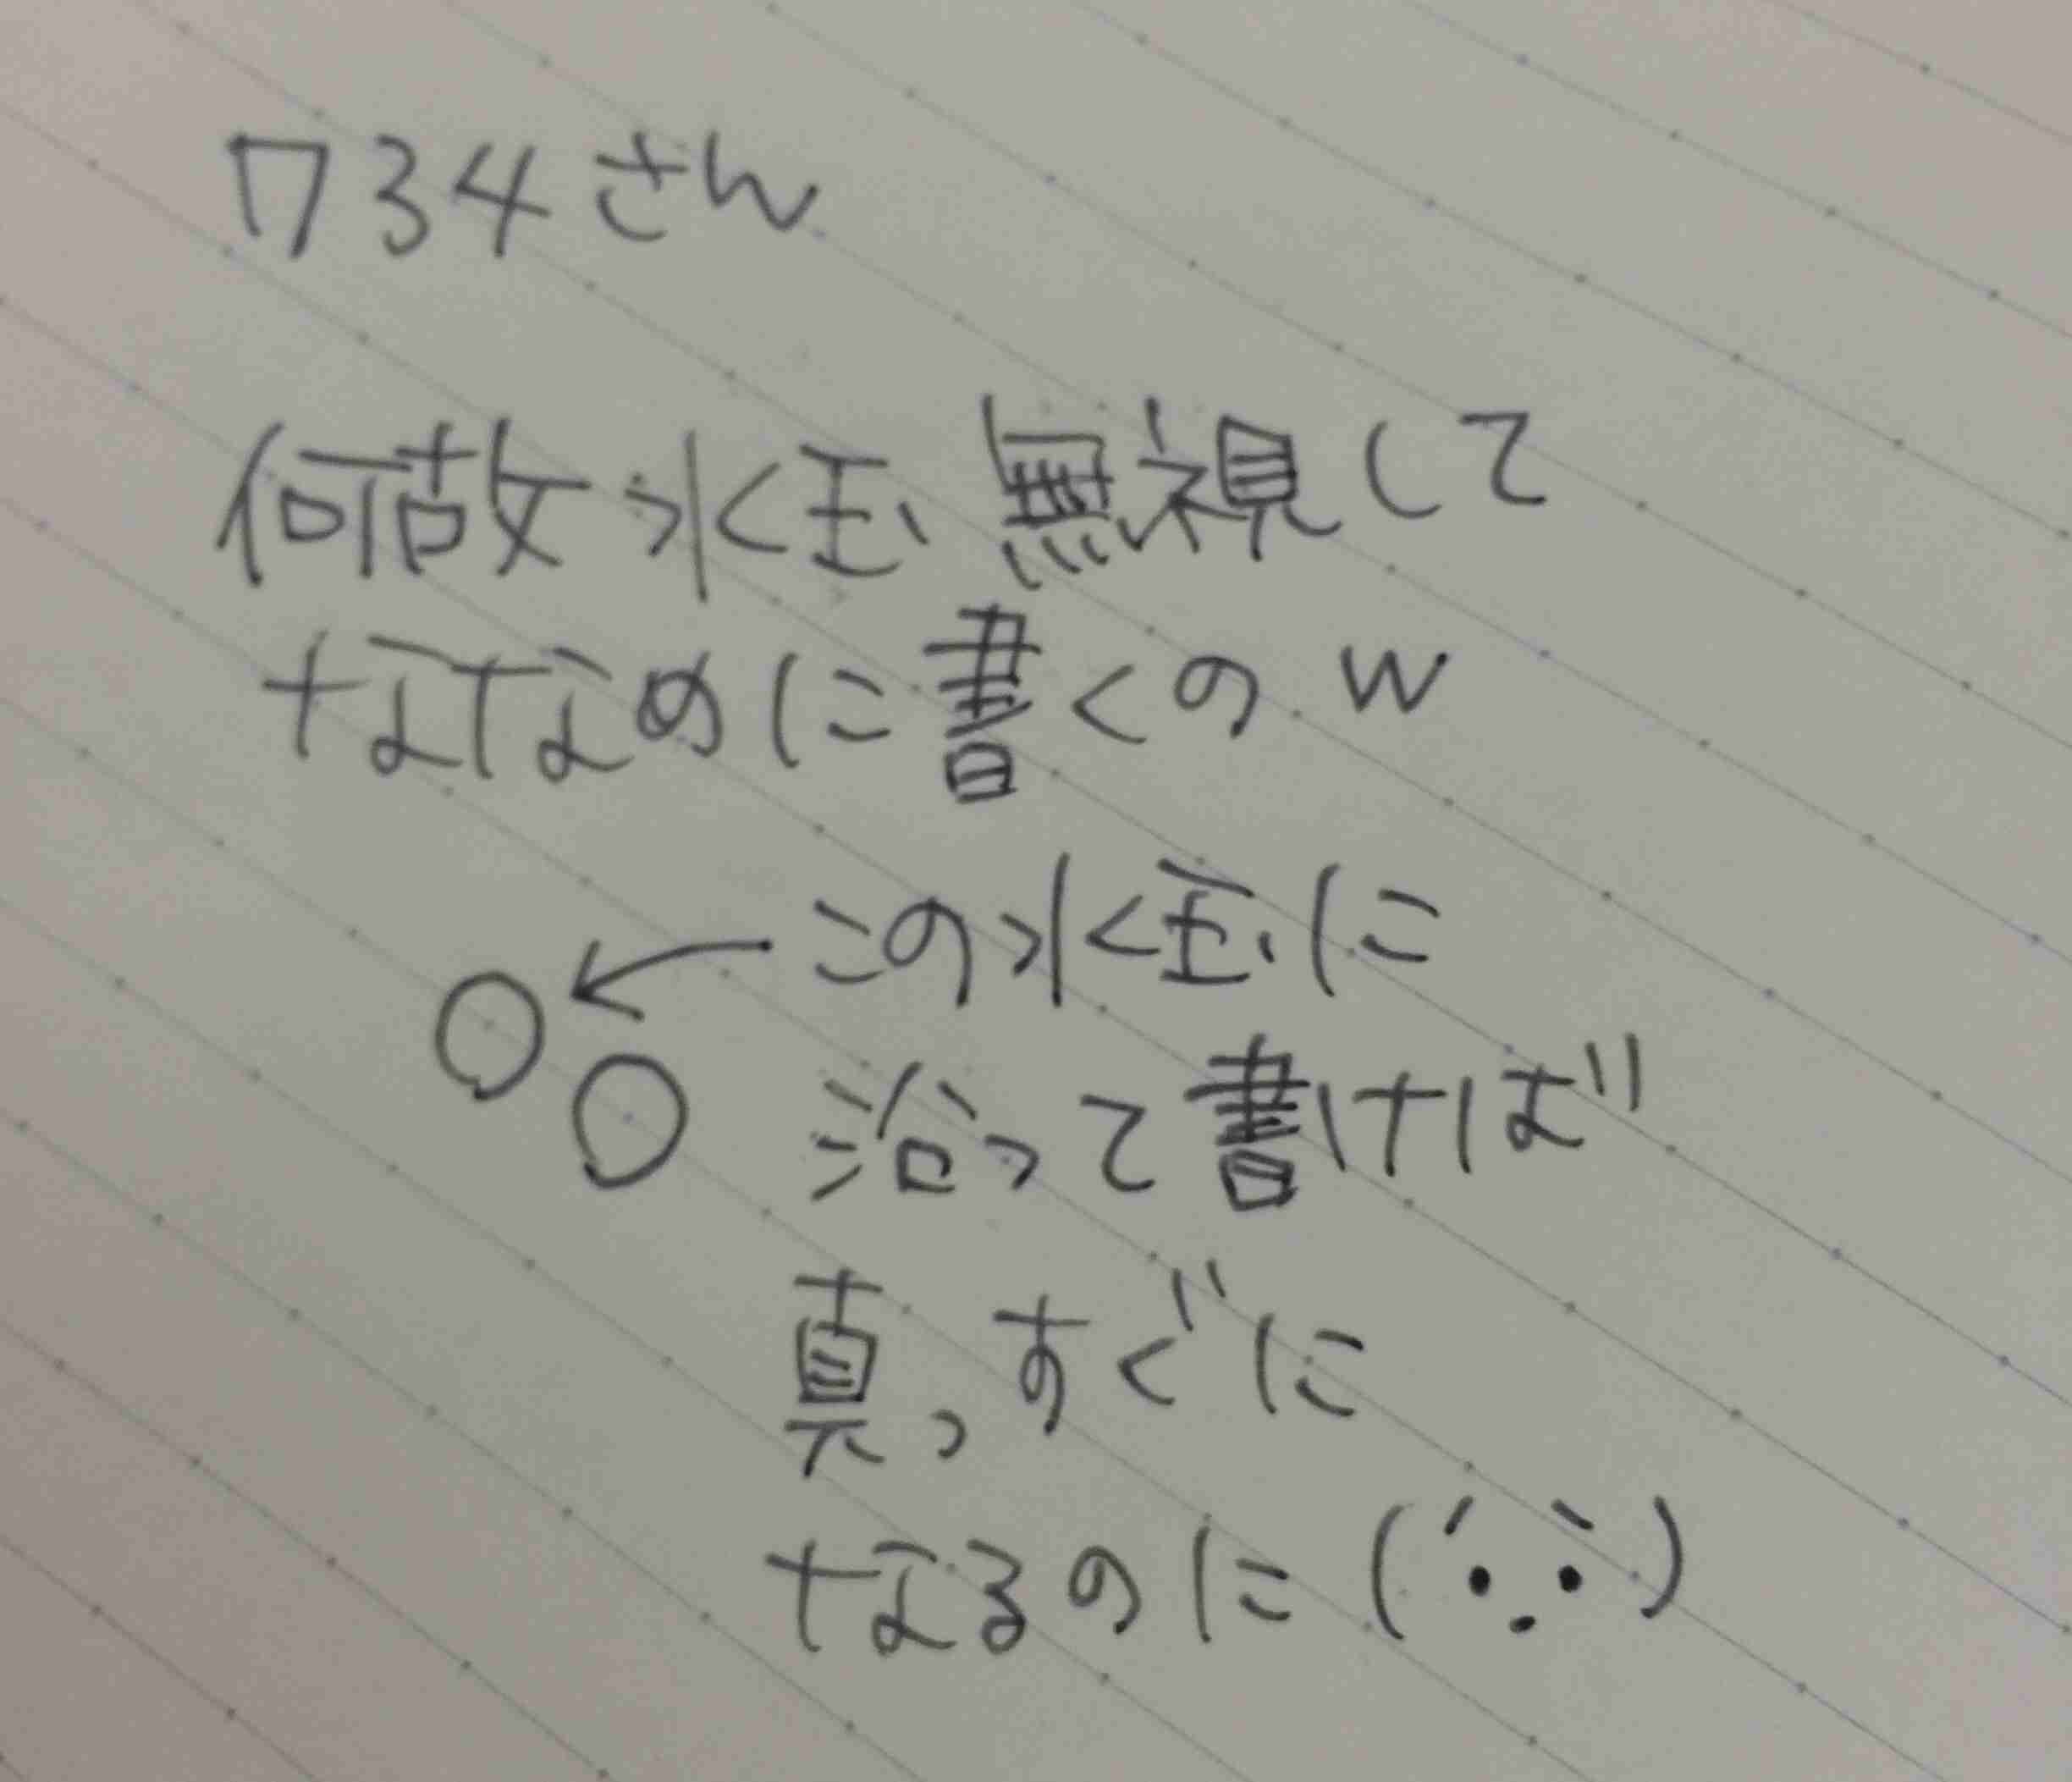 734さん
何故水玉無視して
ななめに書くのw
この水玉に
沿って書けば
真っすぐに
なるのに(´・.・｀)